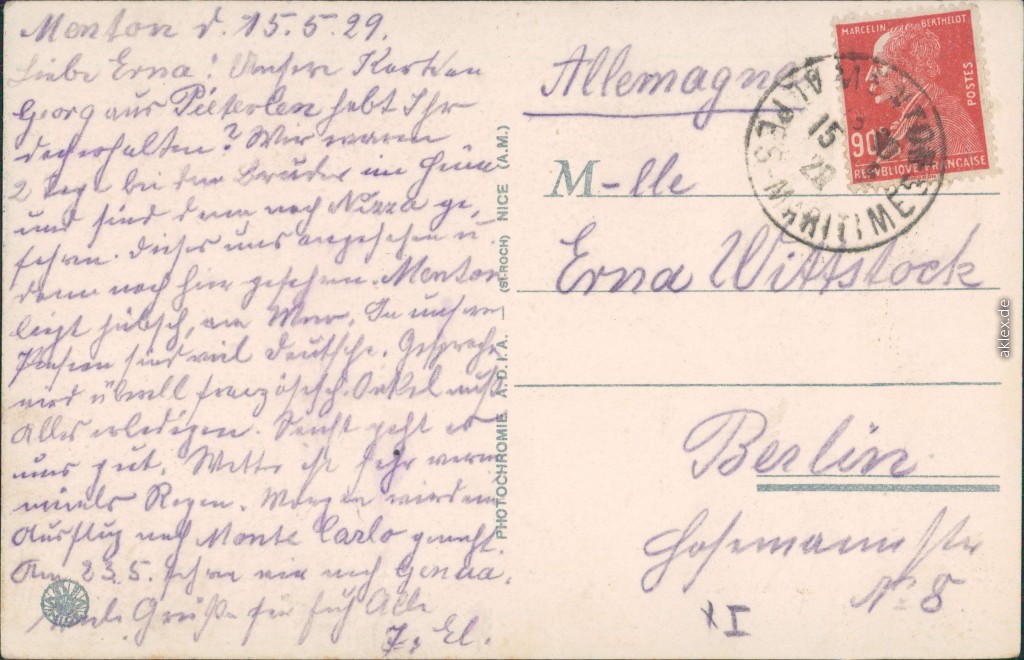 Menton d. 15.5.29.
Liebe Erna! Unsere Karten
Georg aus Pieterlen habt Ihr
doch erhalten? Wir waren
2 Tage bei dem Bruder im
und sind dann nach Nizza ge-
fahren. Dieses uns angesehen u.
dann nach hier gefahren. Menton
liegt hübsch, am Meer. In unserer
Pension sind viel Deutsche. Gesprochen
wird überall französisch. Onkel muß
Alles erledigen. Sonst geht es
uns gut. Wetter ist sehr warm
niemals Regen. Morgen wird ein
Ausflug nach Monte Carlo gemacht.
Am 23.5. fahren wir nach Genua.
Viele Grüße für Euch Alle
El.
PHOTOCHROMIE A.D.I.A. (St-ROCH) NICE (A.M.)
MARCELIN BERTHELOT
POSTES
90c
REPUBLIQUE FRANÇAISE
MENTON
15
29
ALPES-MARITIMES
Allemagne
M-lle
Erna Wittstock
Berlin
Hosemannstr
No 8
XI
aklex.de